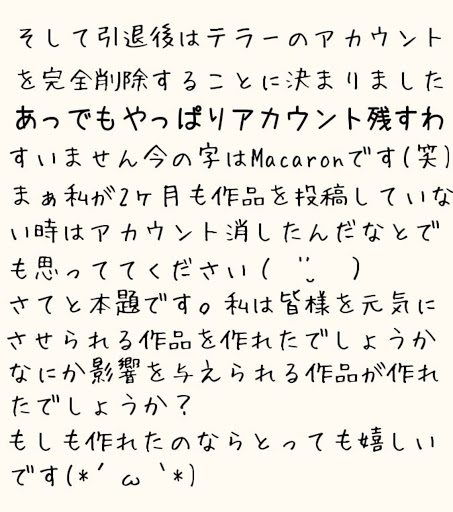 そして引退後はテラーのアカウント
を完全削除することに決まりました
あっでもやっぱりアカウント残すわ
すいません今の字はMacaronです(笑)
まぁ私が2ケ月も作品を投稿していな
い時はアカウント消したんだなとで
も思っててください( ¨̮ )
さてと本題です。私は皆様を元気に
させられる作品を作れたでしょうか
なにか影響を与えられる作品が作れ
たでしょうか?
もしも作れたのならとっても嬉しい
です(*´ω`*)